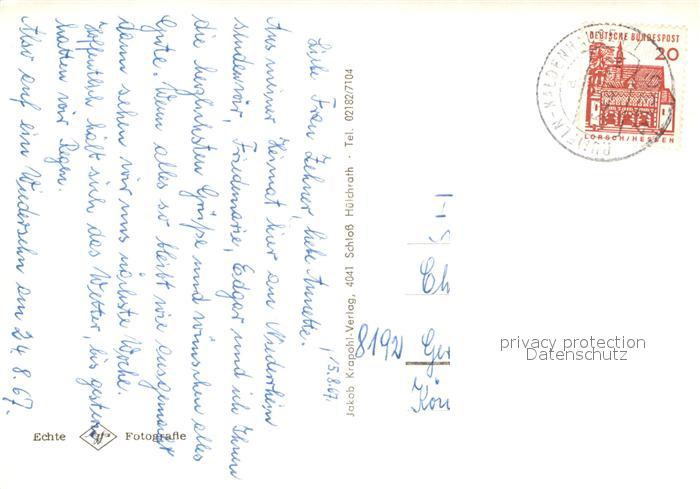 15.8.67.
Liebe Frau Zehner, liebe Annette.
Aus meiner Heimat hier am Niederrhein
senden wir, Friedemarie, Edgar und ich Ihnen
die herzlichsten Grüße und wünschen alles
Gute. Wenn alles so bleibt wie ausgemacht
dann sehen wir uns nächste Woche.
Hoffentlich hält sich das Wetter, bis gestern
hatten wir Regen.
Also auf ein Wiedersehn am 24.8.67.
Echte Fotografie
Jakob Krapohl-Verlag, 4041 Schloß Hülchrath · Tel. 02182/7104
DEUTSCHE BUNDESPOST
20
LORSCH/HESSEN
Ch
8192 Ger
Kön
privacy protection
Datenschutz